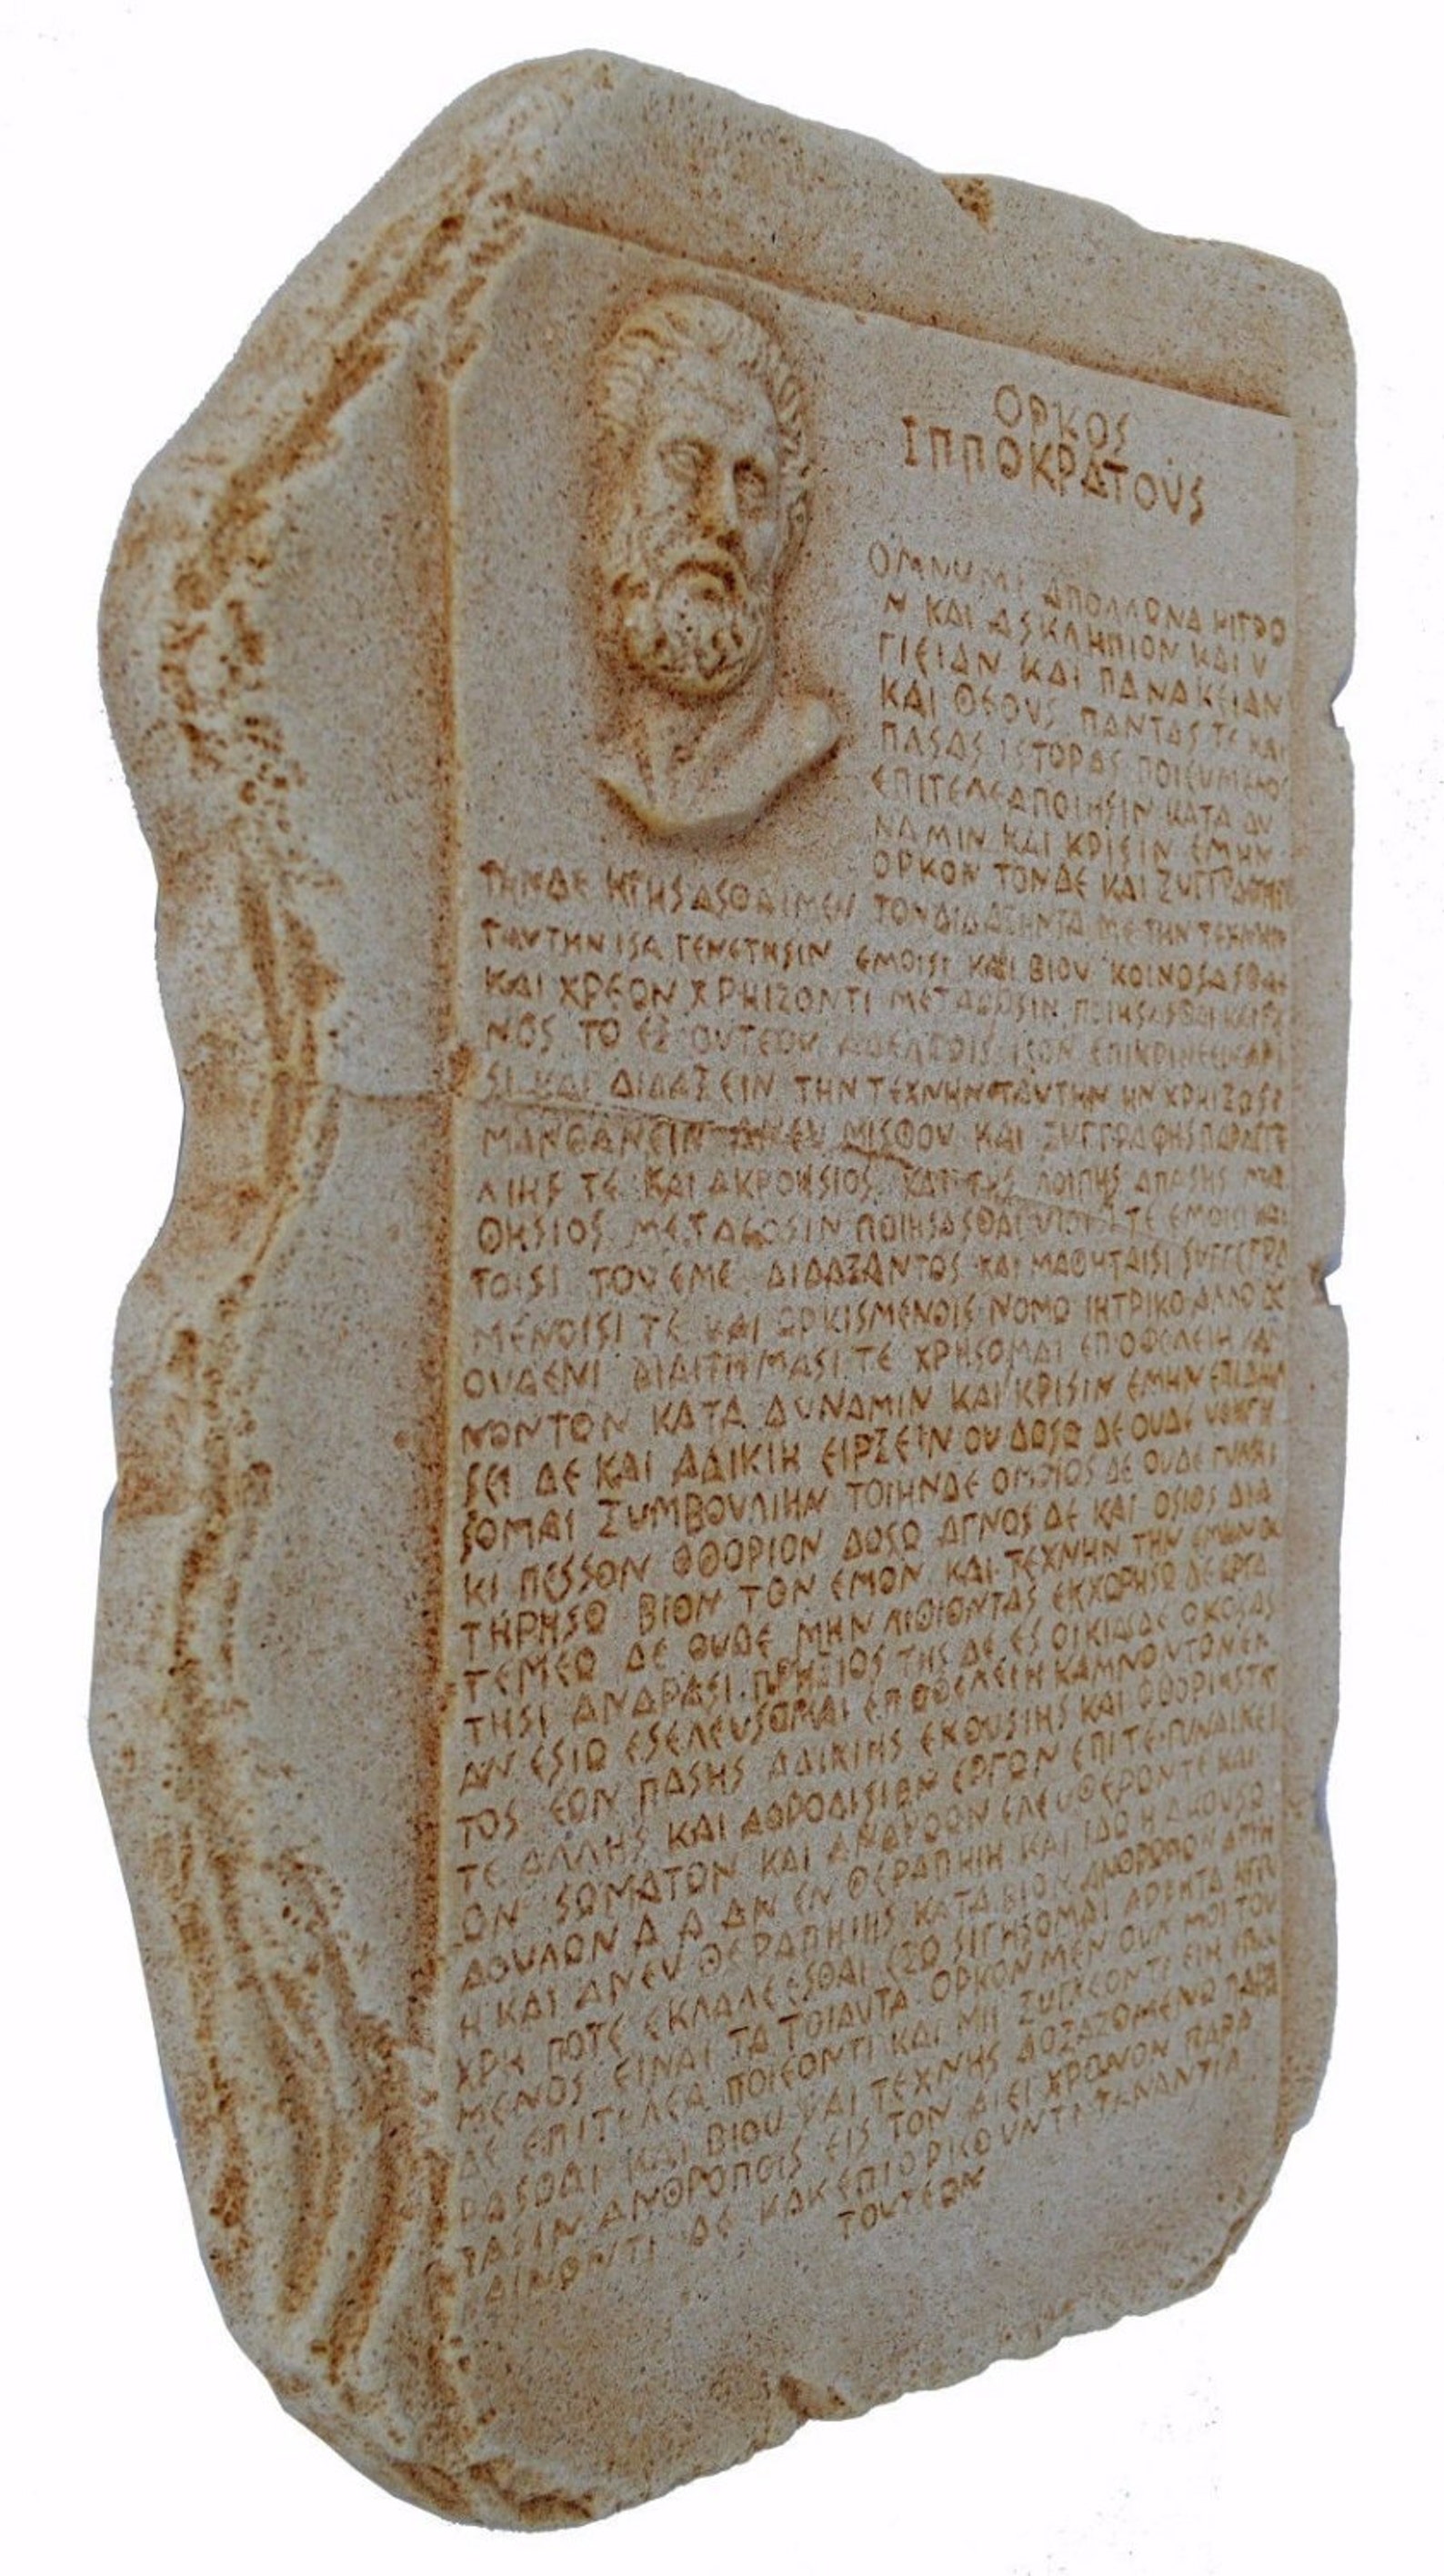 ΟΡΚΟΣ
ΙΠΠΟΚΡΑΤΟΥΣ
ΟΜΝΥΜΙ ΑΠΟΛΛΩΝΑ ΙΗΤΡΟ
Ν ΚΑΙ ΑΣΚΛΗΠΙΟΝ ΚΑΙ Υ
ΓΙΕΙΑΝ ΚΑΙ ΠΑΝΑΚΕΙΑΝ
ΚΑΙ ΘΕΟΥΣ ΠΑΝΤΑΣ ΤΕ ΚΑΙ
ΠΑΣΑΣ ΙΣΤΟΡΑΣ ΠΟΙΕΥΜΕΝΟΣ
ΕΠΙΤΕΛΕΑ ΠΟΙΗΣΙΝ ΚΑΤΑ ΔΥ
ΝΑΜΙΝ ΚΑΙ ΚΡΙΣΙΝ ΕΜΗΝ
ΟΡΚΟΝ ΤΟΝΔΕ ΚΑΙ ΞΥΓΓΡΑΦΗΝ
ΤΗΝΔΕ ΗΓΗΣΑΣΘΑΙ ΜΕΝ ΤΟΝ ΔΙΔΑΞΗΝΤΑ ΜΕ ΤΗΝ ΤΕΧΝΗΝ
ΤΑΥΤΗΝ ΙΣΑ ΓΕΝΕΤΗΣΙΝ ΕΜΟΙΣΙ ΚΑΙ ΒΙΟΥ ΚΟΙΝΟΣΑΣΘΑΙ
ΚΑΙ ΧΡΕΩΝ ΧΡΗΙΖΟΝΤΙ ΜΕΤΑΔΟΣΙΝ ΠΟΙΗΣΑΣΘΑΙ ΚΑΙ ΓΕ
ΝΟΣ ΤΟ ΕΞ ΟΥΤΕΟΥ ΑΔΕΛΦΟΙΣ ΙΣΟΝ ΕΠΙΚΡΙΝΕΕΙΝ ΑΡΕ
ΣΙ ΚΑΙ ΔΙΔΑΞΕΙΝ ΤΗΝ ΤΕΧΝΗΝ ΤΑΥΤΗΝ ΗΝ ΧΡΗΙΖΩΣΙ
ΜΑΝΘΑΝΕΙΝ ΑΝΕΥ ΜΙΣΘΟΥ ΚΑΙ ΞΥΓΓΡΑΦΗΣ ΠΑΡΑΓΓΕ
ΛΙΗΣ ΤΕ ΚΑΙ ΑΚΡΟΗΣΙΟΣ ΚΑΙ ΤΗΣ ΛΟΙΠΗΣ ΑΠΑΣΗΣ ΜΑ
ΘΗΣΙΟΣ ΜΕΤΑΔΟΣΙΝ ΠΟΙΗΣΑΣΘΑΙ ΥΙΟΙΣΙ ΤΕ ΕΜΟΙΣΙ ΚΑΙ
ΤΟΙΣΙ ΤΟΥ ΕΜΕ ΔΙΔΑΞΑΝΤΟΣ ΚΑΙ ΜΑΘΗΤΑΙΣΙ ΣΥΓΓΕΓΡΑ
ΜΕΝΟΙΣΙ ΤΕ ΚΑΙ ΩΡΚΙΣΜΕΝΟΙΣ ΝΟΜΟ ΙΗΤΡΙΚΟ ΑΛΛΟ ΔΕ
ΟΥΔΕΝΙ ΔΙΑΙΤΗΜΑΣΙ ΤΕ ΧΡΗΣΟΜΑΙ ΕΠ ΟΦΕΛΕΙΗ ΚΑΜ
ΝΟΝΤΩΝ ΚΑΤΑ ΔΥΝΑΜΙΝ ΚΑΙ ΚΡΙΣΙΝ ΕΜΗΝ ΕΠΙ ΔΗΛΗ
ΣΕΙ ΔΕ ΚΑΙ ΑΔΙΚΙΗ ΕΙΡΞΕΙΝ ΟΥ ΔΩΣΩ ΔΕ ΟΥΔΕ ΥΦΗΓΗ
ΣΟΜΑΙ ΞΥΜΒΟΥΛΙΗΝ ΤΟΙΗΝΔΕ ΟΜΟΙΟΣ ΔΕ ΟΥΔΕ ΓΥΝΑΙ
ΚΙ ΠΕΣΣΟΝ ΦΘΟΡΙΟΝ ΔΩΣΩ ΑΓΝΟΣ ΔΕ ΚΑΙ ΟΣΙΟΣ ΔΙΑ
ΤΗΡΗΣΩ ΒΙΟΝ ΤΟΝ ΕΜΟΝ ΚΑΙ ΤΕΧΝΗΝ ΤΗΝ ΕΜΗΝ ΟΥ
ΤΕΜΕΩ ΔΕ ΟΥΔΕ ΜΗΝ ΛΙΘΙΟΝΤΑΣ ΕΚΧΩΡΗΣΩ ΔΕ ΕΡΓΑ
ΤΗΣΙ ΑΝΔΡΑΣΙ ΠΡΗΞΙΟΣ ΤΗΣ ΔΕ ΕΣ ΟΙΚΙΑΣ ΔΕ ΟΚΟΣΑΣ
ΑΝ ΕΣΙΩ ΕΣΕΛΕΥΣΟΜΑΙ ΕΠ ΟΦΕΛΕΙΗ ΚΑΜΝΟΝΤΩΝ ΕΚ
ΤΟΣ ΕΩΝ ΠΑΣΗΣ ΑΔΙΚΙΗΣ ΕΚΟΥΣΙΗΣ ΚΑΙ ΦΘΟΡΙΗΣ ΤΗ
ΤΕ ΑΛΛΗΣ ΚΑΙ ΑΦΡΟΔΙΣΙΩΝ ΕΡΓΩΝ ΕΠΙ ΤΕ ΓΥΝΑΙΚΕΙ
ΩΝ ΣΩΜΑΤΩΝ ΚΑΙ ΑΝΔΡΩΩΝ ΕΛΕΥΘΕΡΩΝ ΤΕ ΚΑΙ
ΔΟΥΛΩΝ Α Δ ΑΝ ΕΝ ΘΕΡΑΠΗΙΗ ΚΑΙ ΙΔΩ Η ΑΚΟΥΣΩ
Η ΚΑΙ ΑΝΕΥ ΘΕΡΑΠΗΙΗΣ ΚΑΤΑ ΒΙΟΝ ΑΝΘΡΩΠΩΝ Α ΜΗ
ΧΡΗ ΠΟΤΕ ΕΚΛΑΛΕΕΣΘΑΙ ΕΞΩ ΣΙΓΗΣΟΜΑΙ ΑΡΡΗΤΑ ΗΓΕΥ
ΜΕΝΟΣ ΕΙΝΑΙ ΤΑ ΤΟΙΑΥΤΑ ΟΡΚΟΝ ΜΕΝ ΟΥΝ ΜΟΙ ΤΟΥ
ΔΕ ΕΠΙΤΕΛΕΑ ΠΟΙΕΟΝΤΙ ΚΑΙ ΜΗ ΞΥΓΧΕΟΝΤΙ ΕΙΗ ΕΠΑΥ
ΡΑΣΘΑΙ ΚΑΙ ΒΙΟΥ ΚΑΙ ΤΕΧΝΗΣ ΔΟΞΑΖΟΜΕΝΩ ΠΑΡΑ
ΠΑΣΙΝ ΑΝΘΡΟΠΟΙΣ ΕΙΣ ΤΟΝ ΑΙΕΙ ΧΡΟΝΟΝ ΠΑΡΑ
ΒΑΙΝΟΝΤΙ ΔΕ ΚΑΚ ΕΠΙΟΡΚΟΥΝΤΙ ΤΑΝΑΝΤΙΑ
ΤΟΥΤΕΩΝ